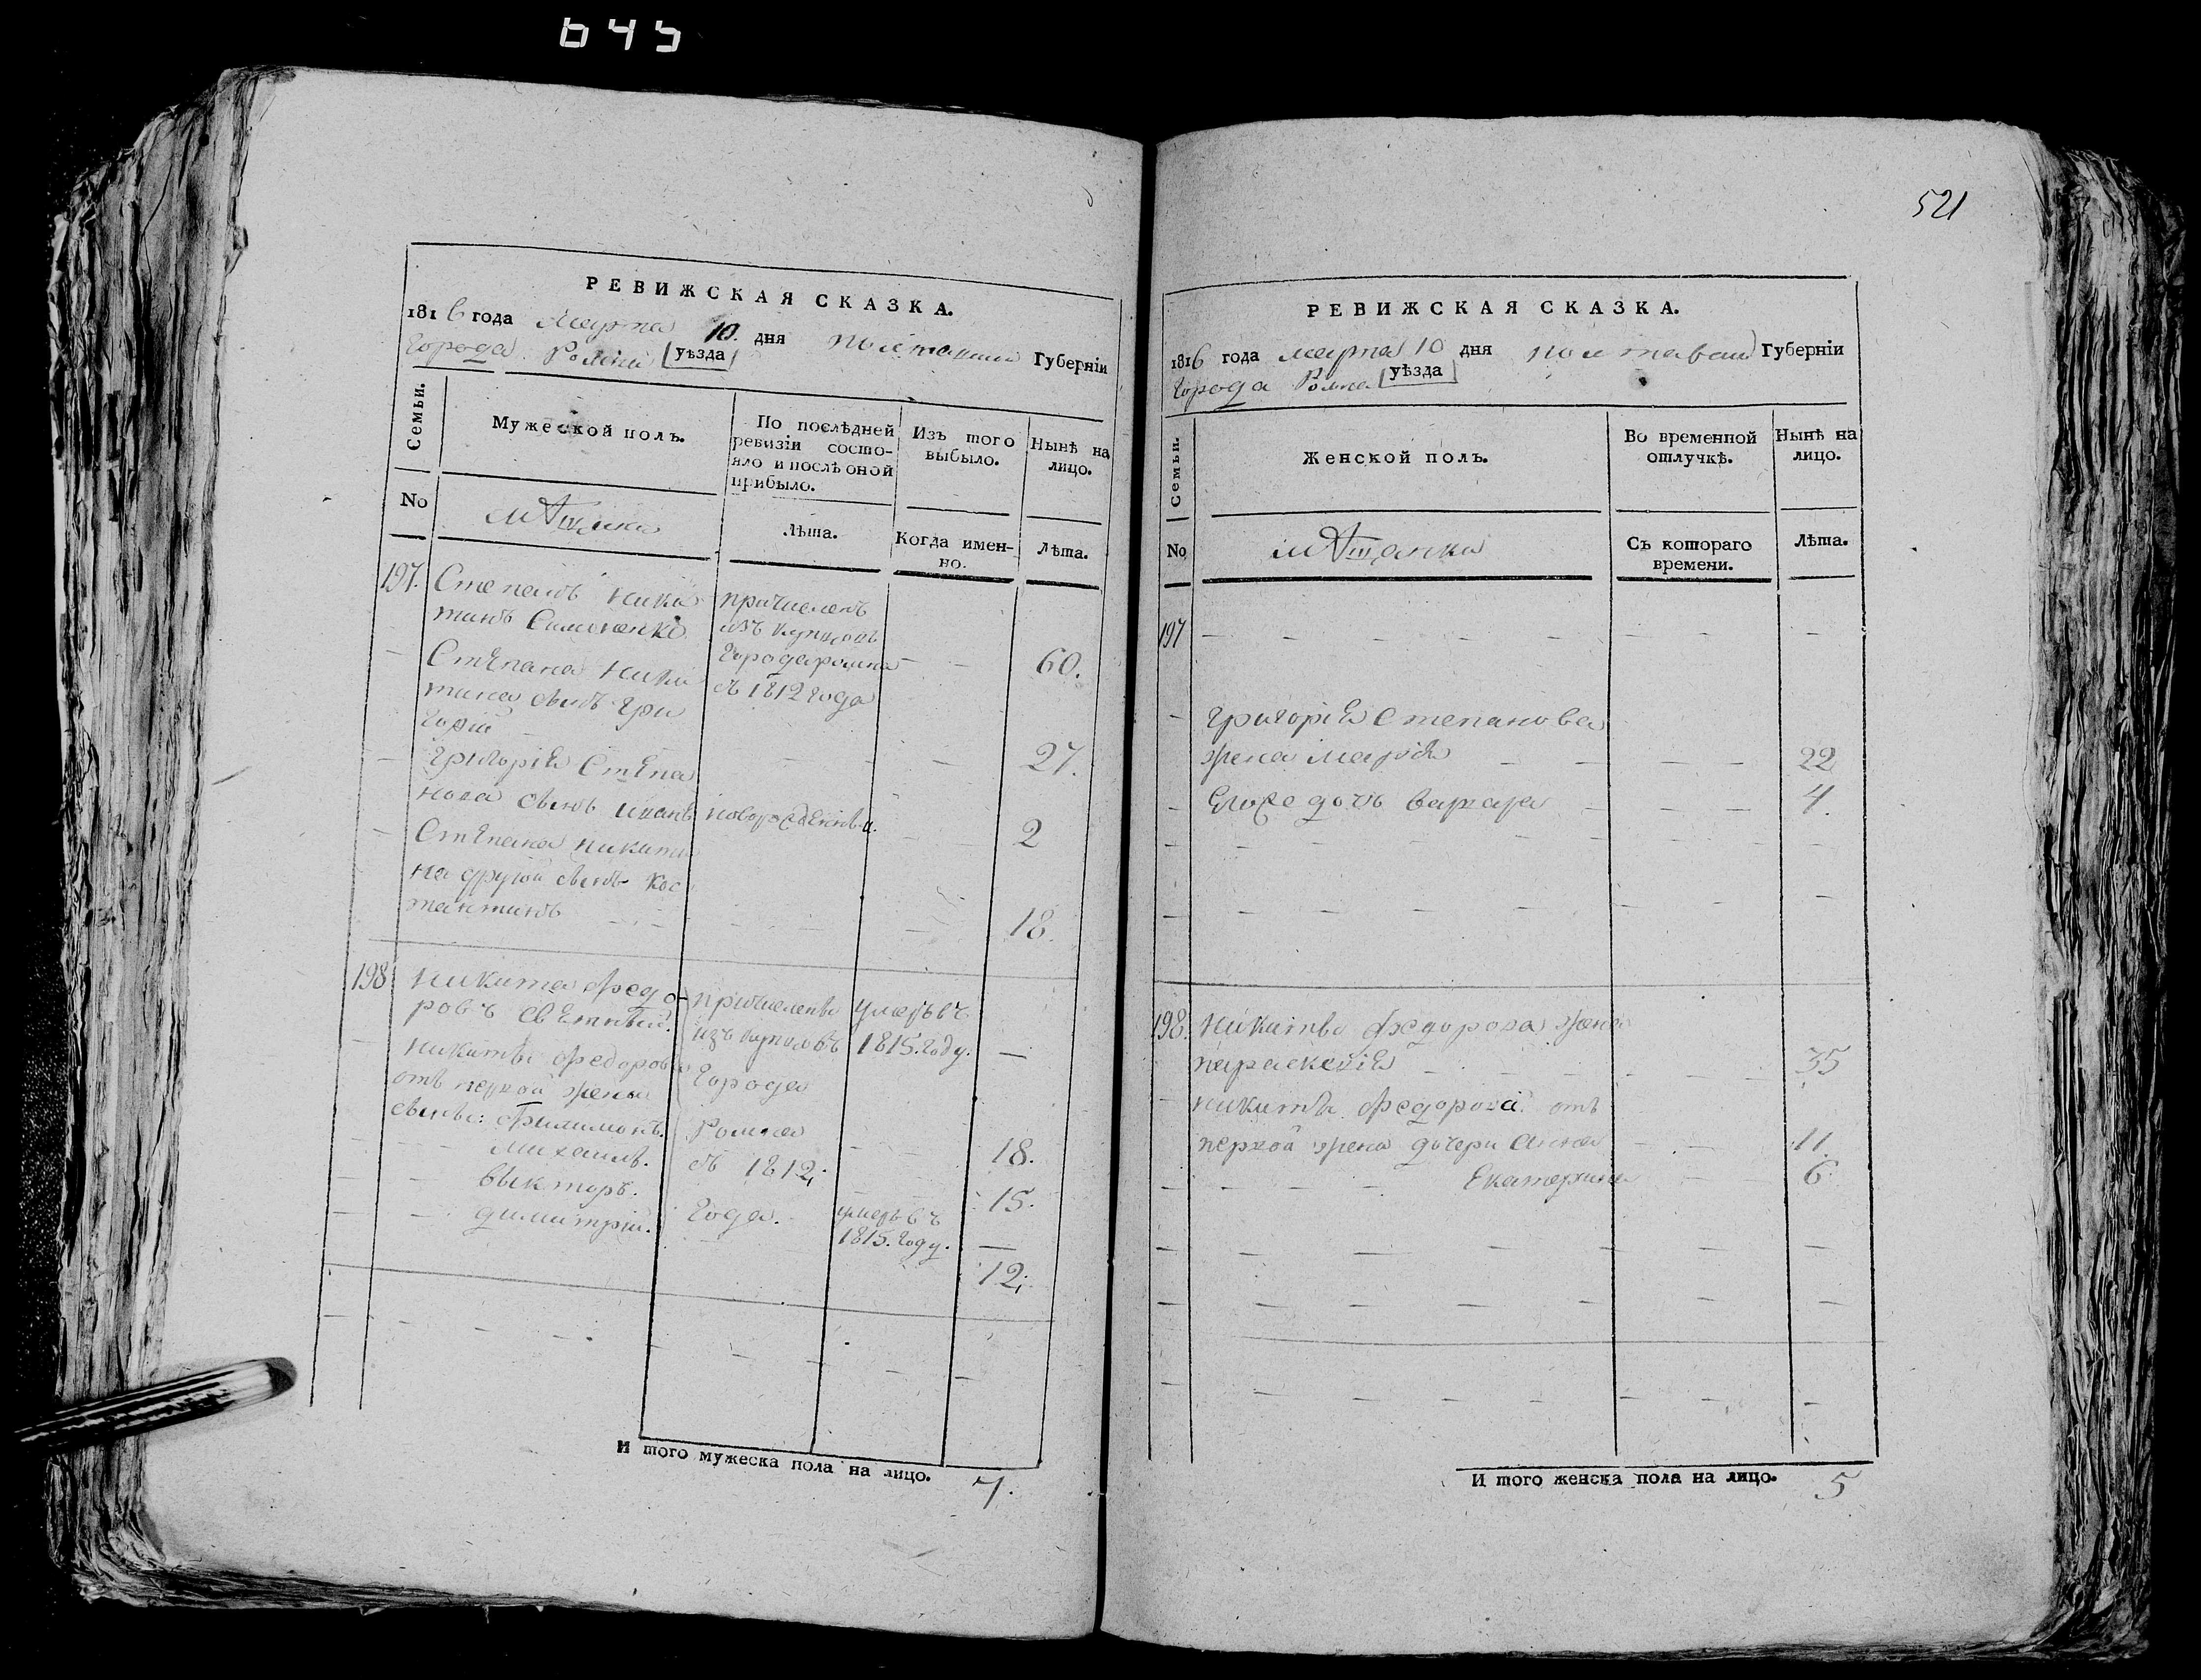 645
РЕВИЖСКАЯ СКАЗКА.
1816 года Марта 10. дня Полтавской Губерніи
Города Ромна [уѣзда]
Семьи.
Мужеской полъ.
По послѣдней ревизіи состо-
яло и послѣ оной прибыло.
Изъ того выбыло.
Нынѣ на лицо.
No
мѣщане
Лѣта.
Когда имен-
но.
Лѣта.
197. Степанъ Ники
тинъ Симоненко
причисленъ
изъ купцовъ
города ромна
съ 1812 года
60.
Степана Ники
тина сынъ Гри
горій
27.
Григорія Степа
нова сынъ Иванъ новорожденны.
2
Степана Никити
на другой сынъ Кос
тантинъ
18.
198 Никита Федо
ровъ
причислены
изъ купцовъ
города
Ромна
съ 1812,
года.
умеръ въ
1815. году.
—
Никиты Федорова
отъ первой жены
сыны: Филимонъ.
18.
Михаилъ.
15.
Викторъ.
умеръ въ
1815. году.
—
Димитрій.
12,
И того мужеска пола на лицо. 7.
521
РЕВИЖСКАЯ СКАЗКА.
1816 года марта 10 дня Полтавской Губерніи
Города Ромна [уѣзда]
Семьи.
Женской полъ.
Во временной
отлучкѣ.
Нынѣ на
лицо.
No
мѣщанки
Съ котораго
времени.
Лѣта.
197
Григорія Степанова
жена Марфа 22
Егоже дочь Варвара 4.
198. Никиты Федорова жена
Параскевія 35
Никиты Федорова отъ
первой жены дочери Анна 11.
Екатерина 6
И того женска пола на лицо. 5